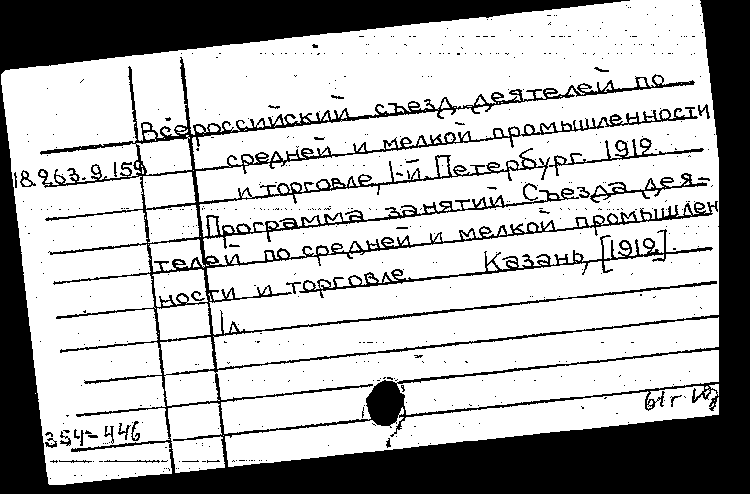 Всероссийский съезд деятелей по
средней и мелкой промышленности
18.263.9.159
и торговле, 1-й. Петербург. 1912.
Программа занятий Съезда дея-
телей по средней и мелкой промышлен
ности и торговле. Казань, [1912].
1л.
354-446
61г